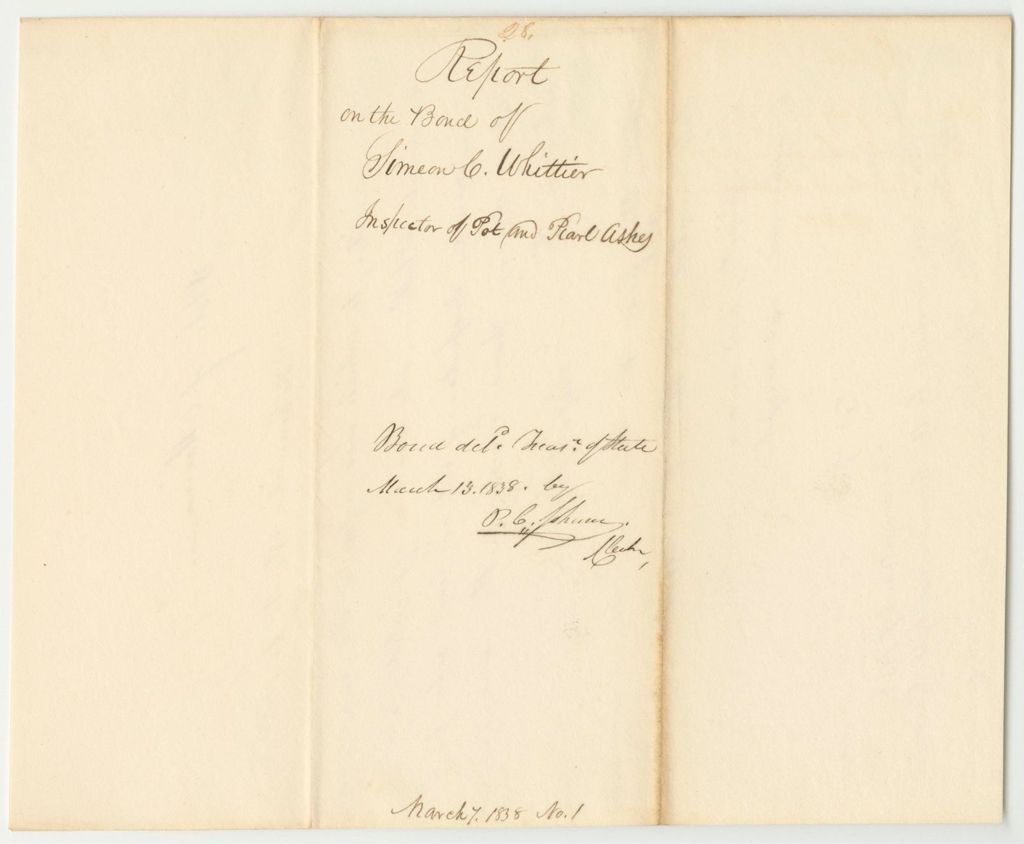 28.
Report
on the Bond of
Simeon C. Whittier
Inspector of Pot and Pearl Ashes
Bond deld. Treasr. of State
March 13. 1838. by
P. C. Johnson.
Clerk,
March 7. 1838 No. 1